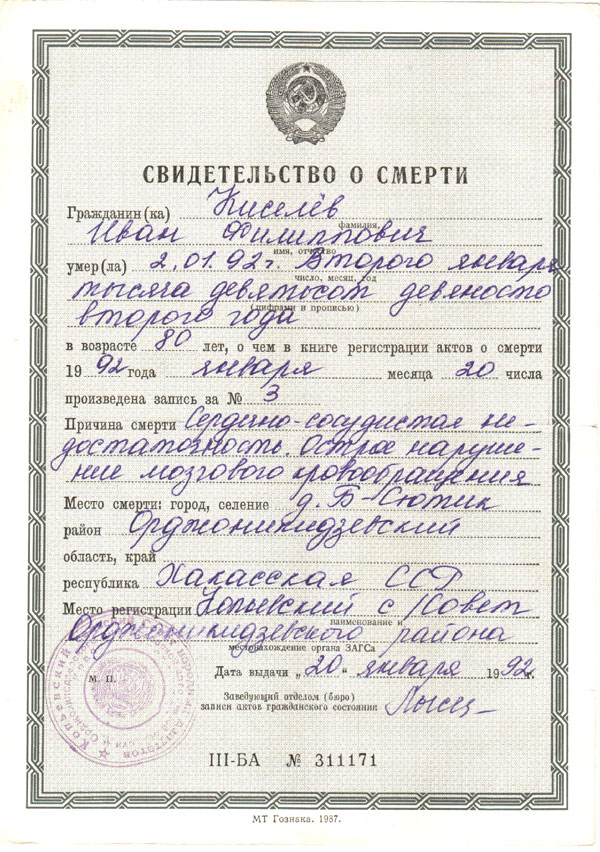 СВИДЕТЕЛЬСТВО О СМЕРТИ
Гражданин(ка) Киселёв
фамилия,
Иван Филиппович
имя, отчество
умер(ла) 2.01.92г. Второго января
число, месяц, год
тысяча девятьсот девяносто
(цифрами и прописью)
второго года
в возрасте 80 лет, о чем в книге регистрации актов о смерти
1992 года января месяца 20 числа
произведена запись за № 3
Причина смерти Сердечно-сосудистая не-
достаточность. Острое наруше-
ние мозгового кровообращения
Место смерти: город, селение д. Б-Сютик
район Орджоникидзевский
область, край
республика Хакасская ССР
Место регистрации Копьевский с/Совет
наименование и
Орджоникидзевского района
местонахождение органа ЗАГСа
Дата выдачи „20" января 1992 г.
М. П.
Заведующий отделом (бюро)
записи актов гражданского состояния
III-БА № 311171
МТ Гознака. 1987.